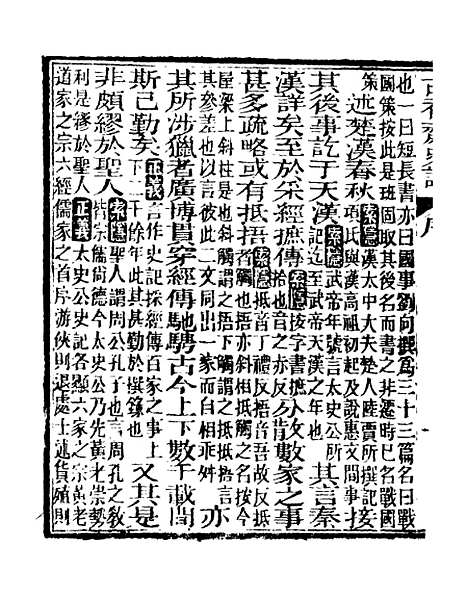 也一曰短長書亦曰國事劉向撰為三十三篇名曰戰
國策按此是班固取其後名而書之非遷時已名戰國
策 述楚漢春秋 索隱 漢太中大夫楚人陸賈所撰記項氏與漢高祖初起及說惠文間事 接
其後事訖于天漢 索隱 武帝年號言太史公所記迄至武帝天漢之年也 其言秦
漢詳矣至於采經摭傳 索隱 按字書摭拾也音之亦反 分散數家之事
甚多疏略或有抵捂 索隱 抵音丁禮反捂音吾故反抵者觸也捂亦斜相抵觸之名按今
屋梁上斜柱是也斜觸謂之捂下觸謂之抵抵捂言其參差也以言彼此二文同出一家而自相乖舛 亦
其所涉獵者廣博貫穿經傳馳騁古今上下數千載間
斯已勤矣 正義 言作史記採經傳百家之事上下二千餘年此其甚勤於撰錄也 又其是
非頗繆於聖人 索隱 聖人謂周公孔子也言周孔之教皆宗儒尚德今太史公乃先黃老崇勢
利是繆於聖人 正義 太史公史記各顯六家之宗黃老
道家之宗六經儒家之首序游俠則退處士述貨殖則